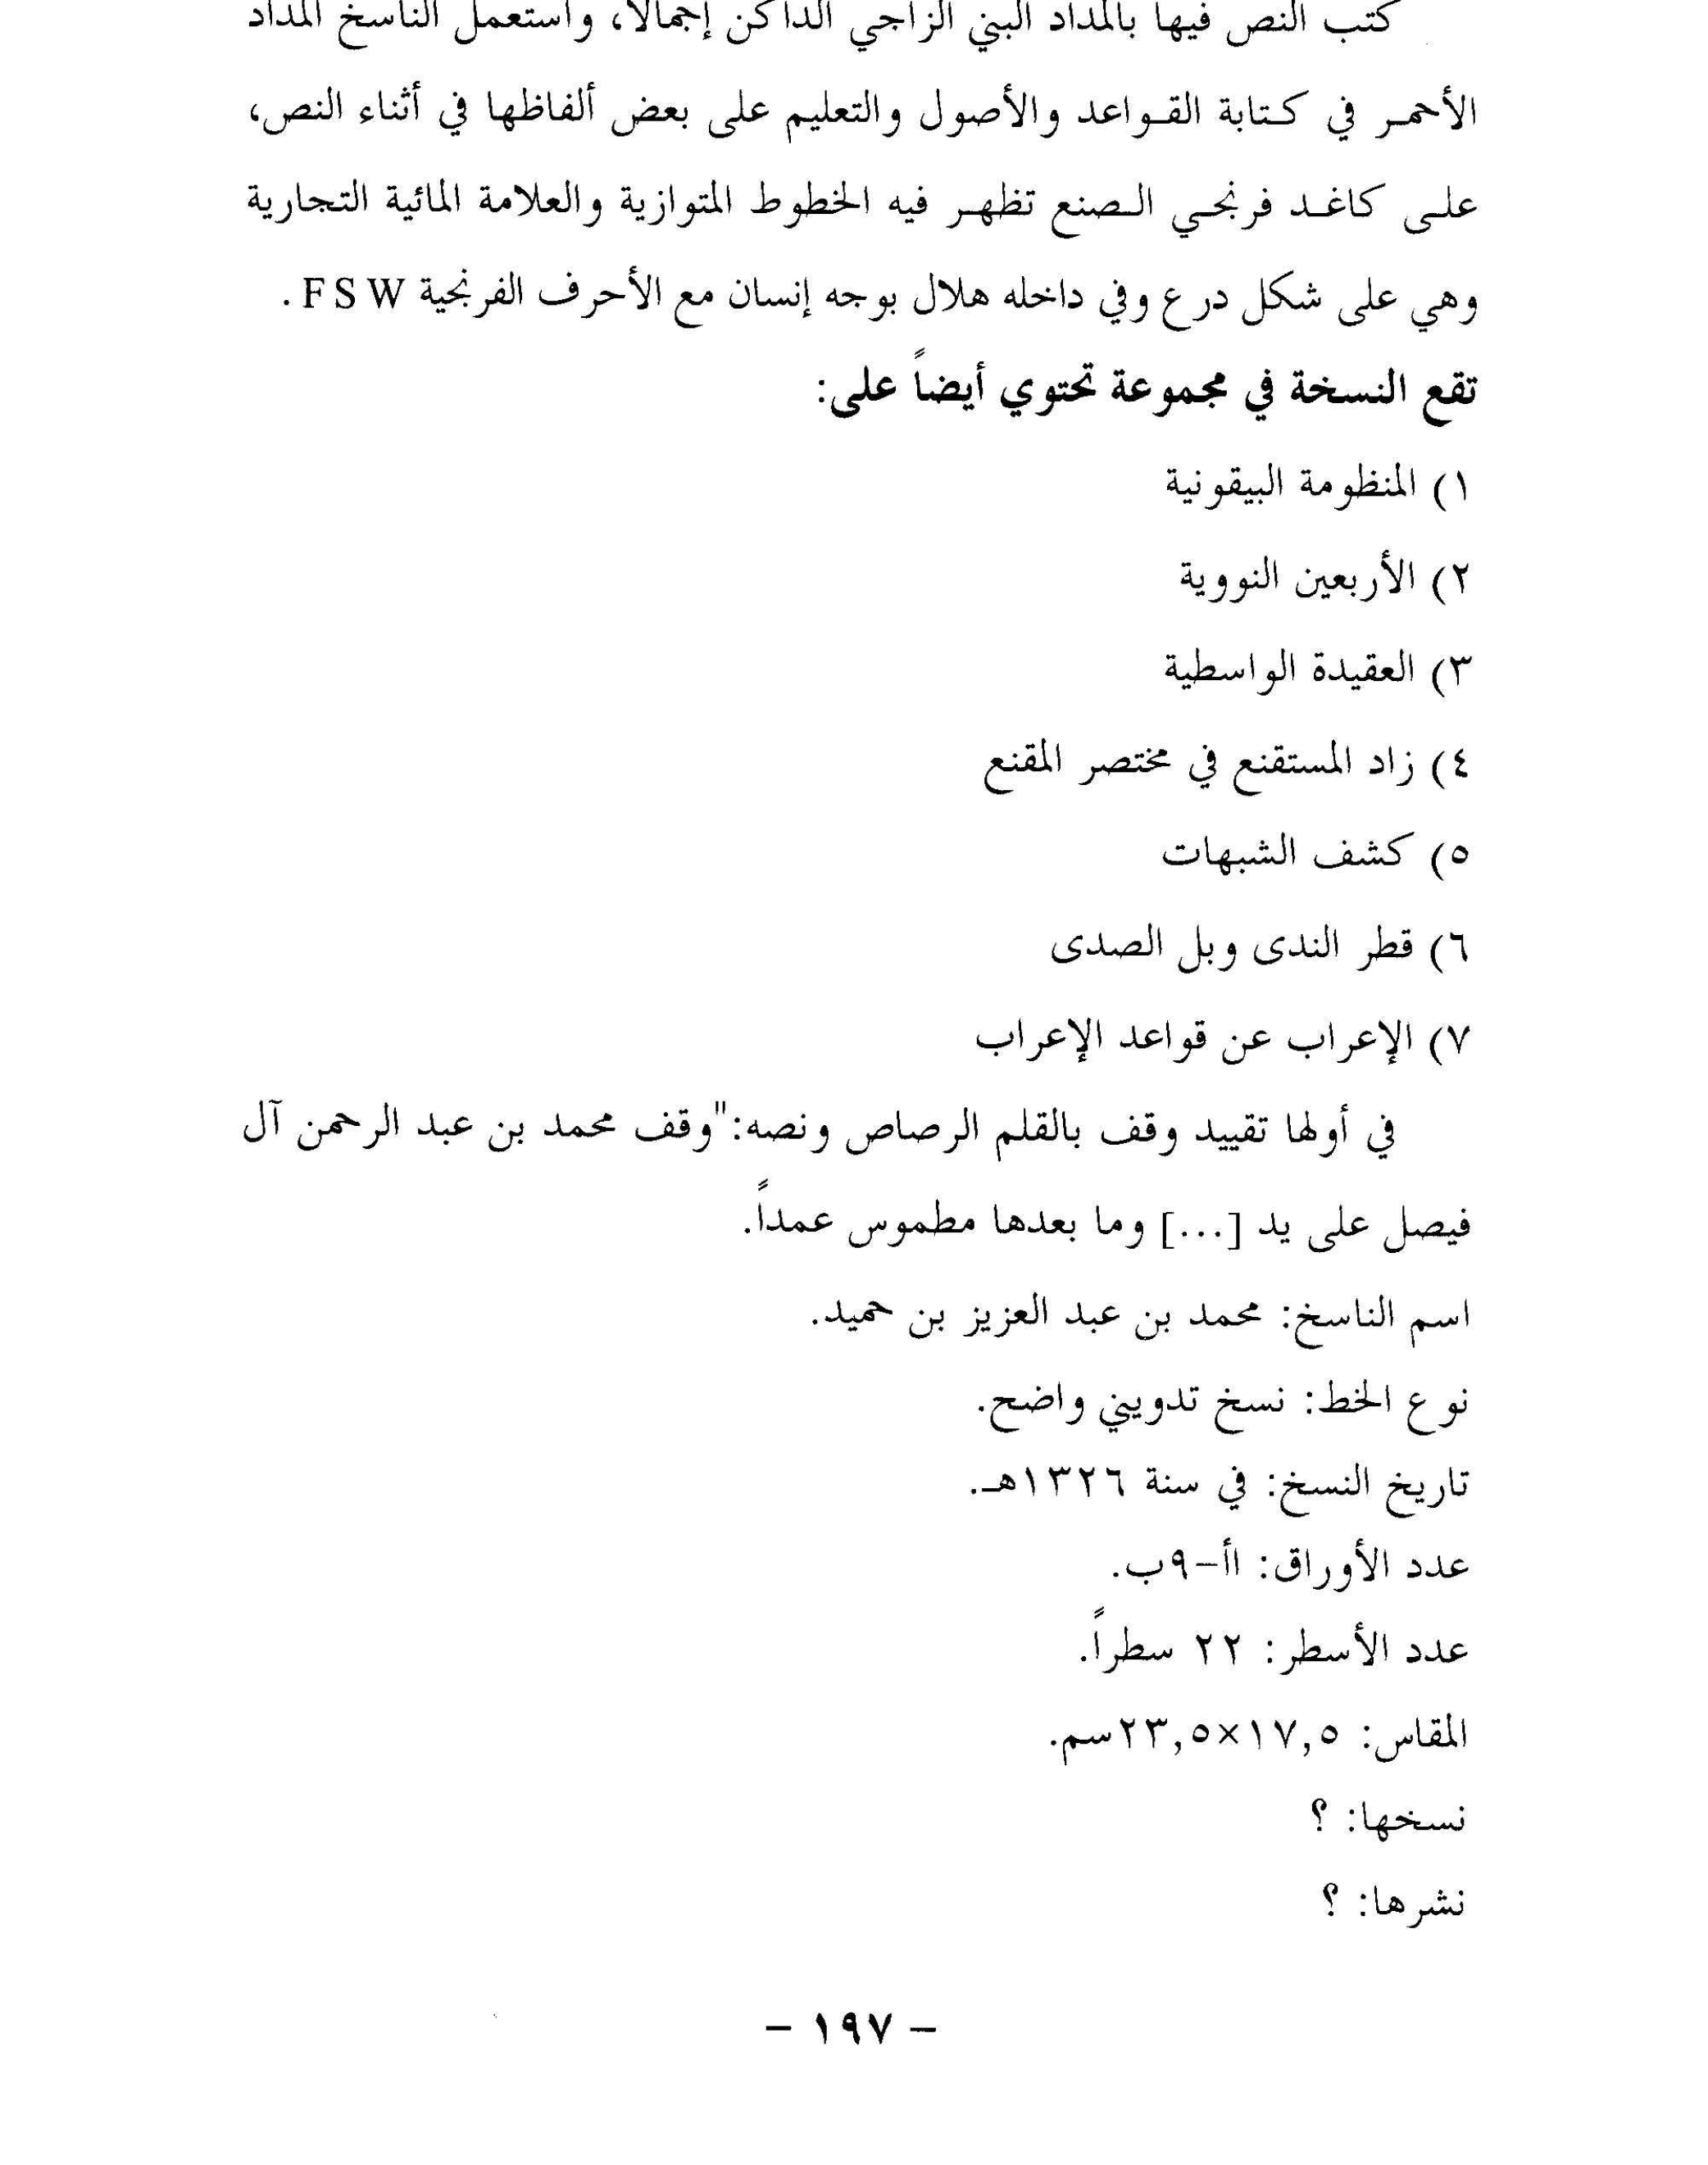 كتب النص فيها بالمداد البني الزاجي الداكن إجمالا، واستعمل الناسخ المداد
الأحمر في كتابة القواعد والأصول والتعليم على بعض ألفاظها في أثناء النص،
على كاغد فرنجي الصنع تظهر فيه الخطوط المتوازية والعلامة المائية التجارية
وهي على شكل درع وفي داخله هلال بوجه إنسان مع الأحرف الفرنجية F S W .
تقع النسخة في مجموعة تحتوي أيضاً على:
١) المنظومة البيقونية
٢) الأربعين النووية
٣) العقيدة الواسطية
٤) زاد المستقنع في مختصر المقنع
٥) كشف الشبهات
٦) قطر الندى وبل الصدى
٧) الإعراب عن قواعد الإعراب
في أولها تقييد وقف بالقلم الرصاص ونصه:"وقف محمد بن عبد الرحمن آل
فيصل على يد [...] وما بعدها مطموس عمداً.
اسم الناسخ: محمد بن عبد العزيز بن حميد.
نوع الخط: نسخ تدويني واضح.
تاريخ النسخ: في سنة ١٣٢٦هـ.
عدد الأوراق: ١أ-٩ب.
عدد الأسطر: ٢٢ سطراً.
المقاس: ١٧,٥×٢٣,٥سم.
نسخها: ؟
نشرها: ؟
- ١٩٧ -